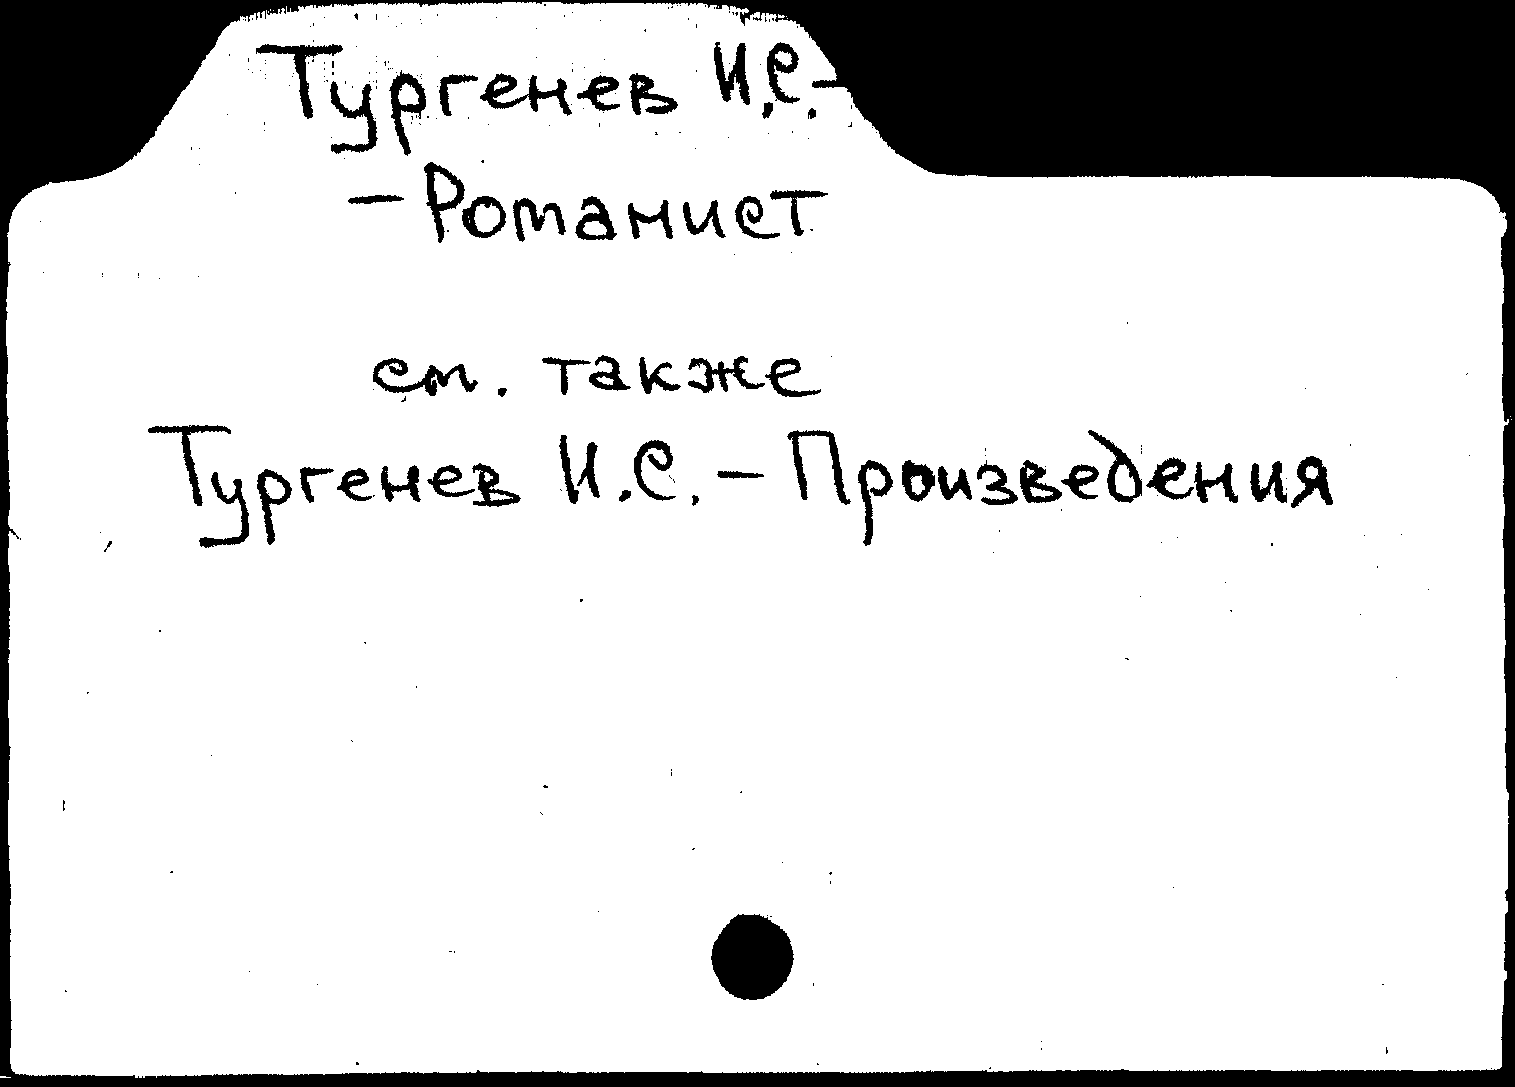 Тургенев И.С.-
- Романист
см. также
Тургенев И.С. - Произведения